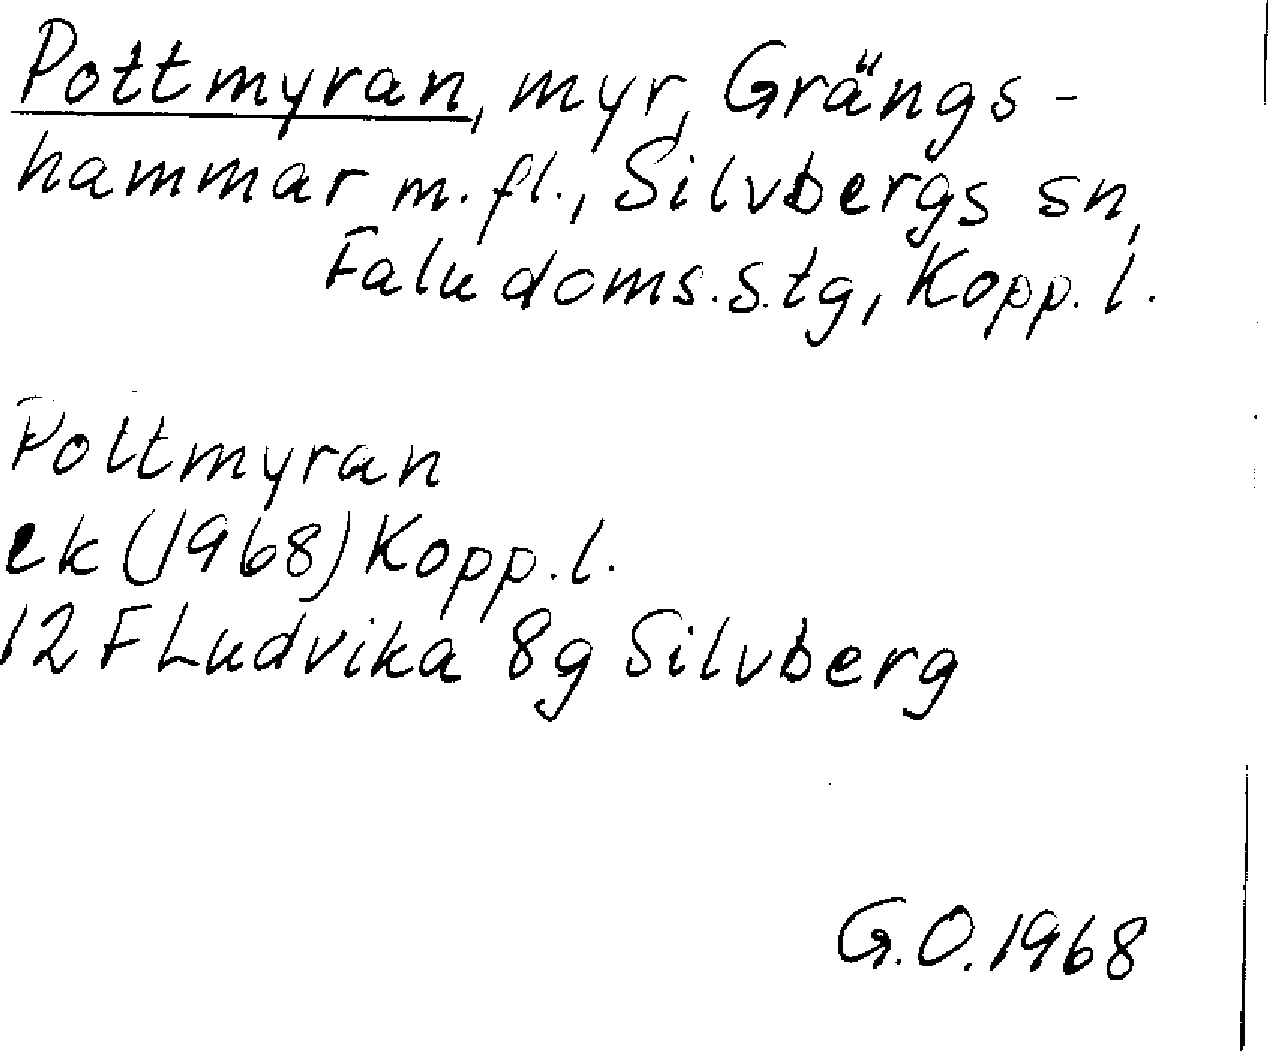 Pottmyran, myr, Grängs-
hammar m.fl., Silvbergs sn,
Falu doms.stg, Kopp. l.
Pottmyran
ek (1968) Kopp. l.
12 F Ludvika 8g Silvberg
G.O. 1968